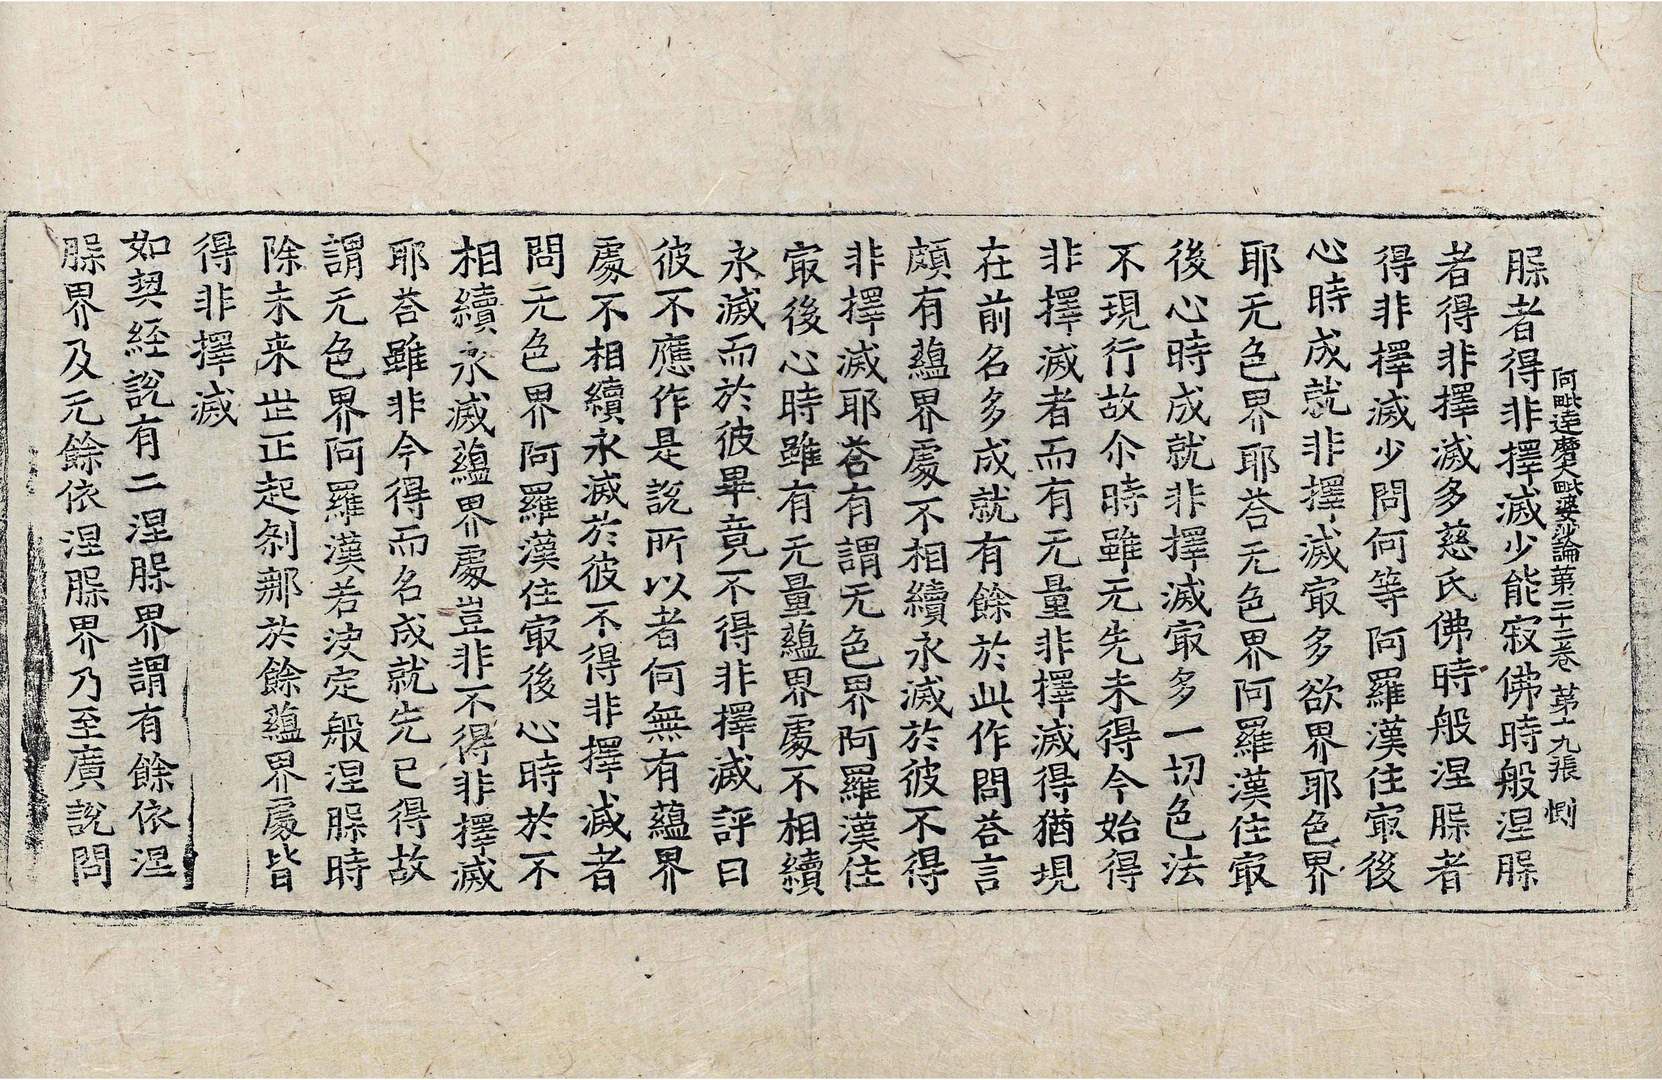 阿毗達磨大毗婆沙論第三十二卷　第十九張　惻
𣵀者得非擇滅少能寂佛時般涅槃
者得非擇滅多慈氏佛時般涅槃者
得非擇滅少問何等阿羅漢住㝡後
心時成就非擇滅㝡多欲界耶色界
耶无色界耶荅无色界阿羅漢住㝡
後心時成就非擇滅㝡多一切色法
不現行故尒時雖无先未得今始得
非擇滅者而有无量非擇滅得猶現
在前名多成就有餘於此作問荅言
頗有蘊界處不相續永滅於彼不得
非擇滅耶荅有謂无色界阿羅漢住
㝡後心時雖有无量蘊界處不相續
永滅而於彼畢竟不得非擇滅評曰
彼不應作是說所以者何無有蘊界
處不相續永滅於彼不得非擇滅者
問无色界阿羅漢住㝡後心時於不
相續永滅蘊界處豈非不得非擇滅
耶荅雖非今得而名成就先已得故
謂无色界阿羅漢若决定般涅槃時
除未来世正起剎那於餘蘊界處皆
得非擇滅
如契經說有二涅槃界謂有餘依涅
槃界及无餘依涅槃界乃至廣說問